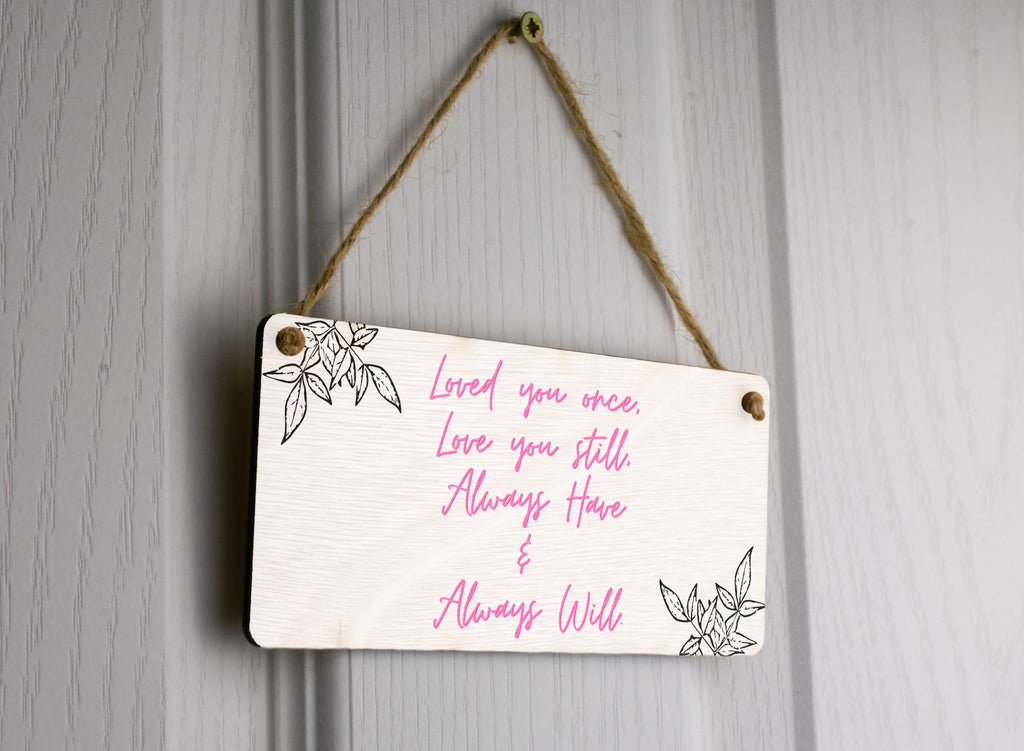 Loved you once,
Love you still,
Always Have
&
Always Will.